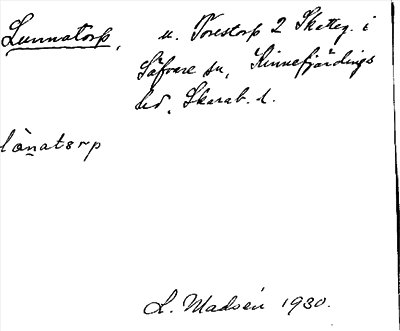 Lunnatorp, u. Torestorp 2 Skatteg. i
Säfvare sn, Kinnefjärdings
hd, Skarab. l.
lònatorp
L. Madsén 1930.